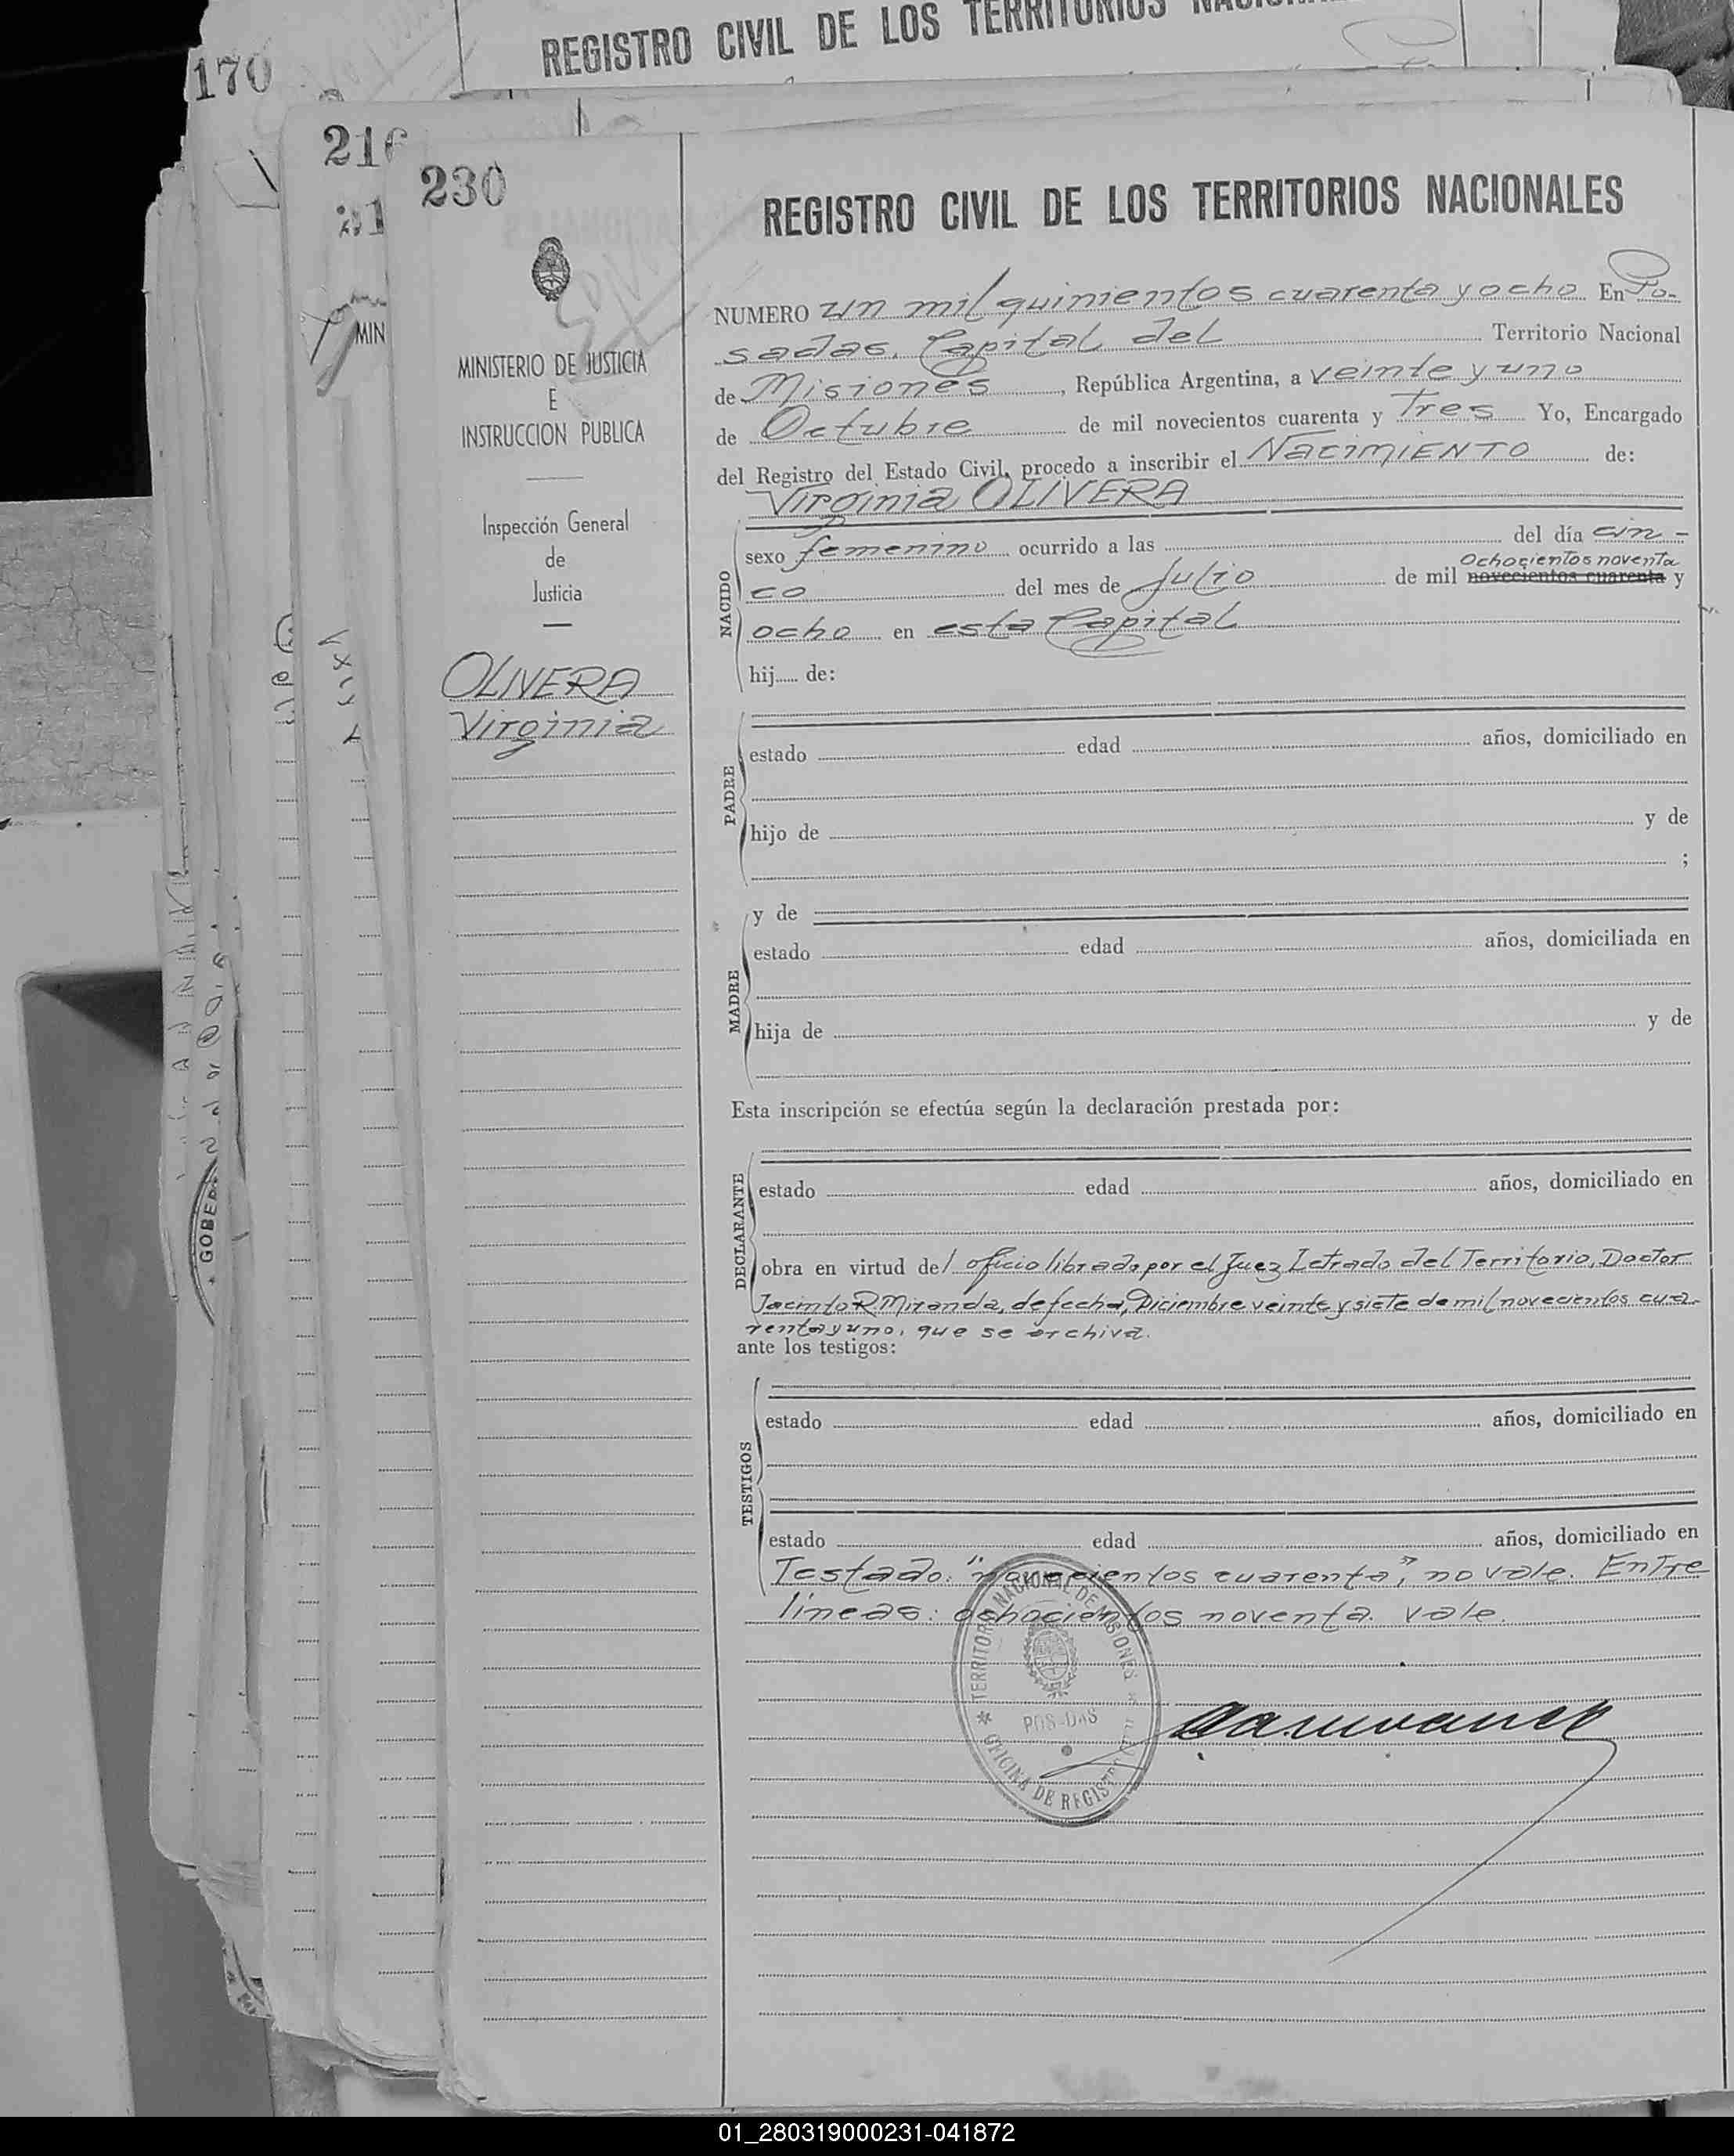 REGISTRO CIVIL DE LOS TERRITORIOS
170
216
21
MIN
230
REGISTRO CIVIL DE LOS TERRITORIOS NACIONALES
MINISTERIO DE JUSTICIA
E
INSTRUCCION PUBLICA
Inspección General
de
Justicia
OLIVERA
Virginia
NUMERO un mil quinientos cuarenta y ocho En Po-
sadas, Capital del Territorio Nacional
de Misiones, República Argentina, a veinte y uno
de Octubre de mil novecientos cuarenta y Tres Yo, Encargado
del Registro del Estado Civil, procedo a inscribir el NACIMIENTO de:
Virginia OLIVERA
NACIDO
sexo femenino ocurrido a las del día cin-
ochocientos noventa
co del mes de Julio de mil novecientos cuarenta y
ocho en esta Capital
hij...... de:
PADRE
estado edad años, domiciliado en
hijo de y de
;
MADRE
y de
estado edad años, domiciliada en
hija de y de
Esta inscripción se efectúa según la declaración prestada por:
DECLARANTE
estado edad años, domiciliado en
obra en virtud del oficio librado por el Juez Letrado del Territorio, Doctor
Jacinto R Miranda, de fecha, Diciembre veinte y siete de mil novecientos cua-
renta y uno, que se archiva.
ante los testigos:
TESTIGOS
estado edad años, domiciliado en
estado edad años, domiciliado en
Testado: "novecientos cuarenta", no vale. Entre
líneas: ochocientos noventa. vale.
TERRITORIO NACIONAL DE MISIONES
POSADAS
OFICINA DE REGISTRO
GOBER
01_280319000231-041872